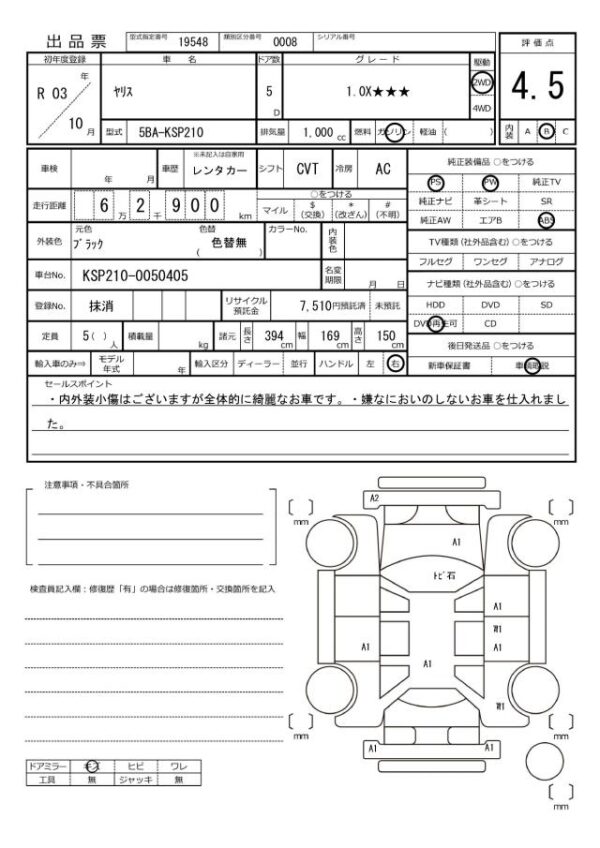 出品票 型式指定番号 19548 類別区分番号 0008 シリアル番号
評価点
4.5
内装 A B C
初年度登録 車名 ドア数 グレード 駆動
R 03 年 10 月
ヤリス
5 D
1.0X★★★
2WD
4WD
型式 5BA-KSP210 排気量 1,000 cc 燃料 ガソリン 軽油 ( )
車検 年 月 車歴 ※未記入は自家用 レンタカー シフト CVT 冷房 AC
走行距離 6 万 2 千 9 0 0 km
○をつける
マイル $ (交換) * (改ざん) # (不明)
外装色 元色 ブラック 色替 色替無 ( ) カラーNo. 内装色
車台No. KSP210-0050405 名変期限 月 日
登録No. 抹消 リサイクル預託金 7,510円預託済 未預託
定員 5( ) 人 積載量 kg 諸元 長さ 394 cm 幅 169 cm 高さ 150 cm
輸入車のみ⇒ モデル年式 年 輸入区分 ディーラー 並行 ハンドル 左 右
純正装備品 ○をつける
PS PW 純正TV
純正ナビ 革シート SR
純正AW エアB ABS
TV種類 (社外品含む) ○をつける
フルセグ ワンセグ アナログ
ナビ種類 (社外品含む) ○をつける
HDD DVD SD
DVD再生可 CD
後日発送品 ○をつける
新車保証書 車輌取説
セールスポイント
・内外装小傷はございますが全体的に綺麗なお車です。・嫌なにおいのしないお車を仕入れまし
た。
注意事項・不具合箇所
検査員記入欄：修復歴「有」の場合は修復箇所・交換箇所を記入
ドアミラー キズ ヒビ ワレ
工具 無 ジャッキ 無
A2
[ ] mm
[ ] mm
A1
トビ石
A1
A1
A1
A1
[ ] mm
[ ] mm
A1
A1
[ ] mm